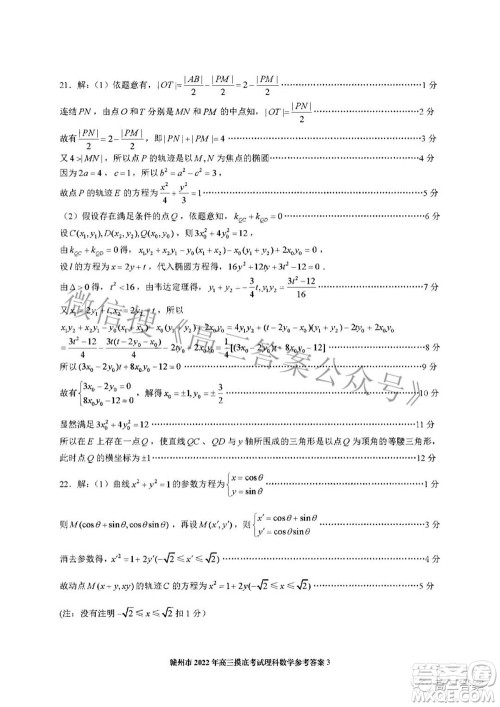 21. 解：（1）依题意有，|OT|=|AB|/2-|PM|/2=2-|PM|/2 ……1 分
连结 PN，由点 O 和 T 分别是 MN 和 PM 的中点知，|OT|=|PN|/2 ……2 分
故有|PN|/2=2-|PM|/2，即|PN|+|PM|=4 ……3 分
又 4>|MN|，所以点 P 的轨迹是以 M,N 为焦点的椭圆
因为 2a=4，c=1，所以 b²=a²-c²=3 ……4 分
故点 P 的轨迹 E 的方程为 x²/4+y²/3=1 ……5 分
（2）假设存在满足条件的点 Q，依题意知，k_QC+k_QD=0 ……6 分
设 C(x₁,y₁),D(x₂,y₂),Q(x₀,y₀)，则 3x₀²+4y₀²=12
由 k_QC+k_QD=0 得，x₁y₂+x₂y₁-y₀(x₁+x₂)-x₀(y₁+y₂)+2x₀y₀=0
设 l 的方程为 x=2y+t，代入椭圆方程得，16y²+12ty+3t²-12=0
由 Δ>0 得，t²<16，由韦达定理得，y₁+y₂=-3/4t,y₁y₂=(3t²-12)/16 ……7 分
又 x₁=2y₁+t,x₂=2y₂+t，所以
x₁y₂+x₂y₁-y₀(x₁+x₂)-x₀(y₁+y₂)+2x₀y₀=4y₁y₂+(t-2y₀-x₀)(y₁+y₂)-2ty₀+2x₀y₀
=(3t²-12)/4-3t(t-2y₀-x₀)/4-2ty₀+2x₀y₀=1/4[(3x₀-2y₀)t+8x₀y₀-12] ……8 分
所以(3x₀-2y₀)t+8x₀y₀-12=0 ……9 分
故有{3x₀-2y₀=0 8x₀y₀-12=0，解得 x₀=±1,y₀=±3/2 ……10 分
显然满足 3x₀²+4y₀²=12 ……11 分
所以在 E 上存在一点 Q，使直线 QC、QD 与 y 轴所围成的三角形是以点 Q 为顶角的等腰三角形，
此时点 Q 的横坐标为±1 ……12 分
22. 解：（1）曲线 x²+y²=1 的参数方程为{x=cosθ y=sinθ ……1 分
则 M(cosθ+sinθ,cosθsinθ)，再设 M(x′,y′)，则{x′=cosθ+sinθ y′=cosθsinθ ……3 分
消去参数得，x′²=1+2y′(-√2≤x≤√2) ……4 分
故动点 M(x+y,xy)的轨迹 C 的方程为 x²=1+2y(-√2≤x≤√2) ……5 分
（注：没有注明-√2≤x≤√2 扣 1 分）
赣州市 2022 年高三摸底考试理科数学参考答案 3
微信搜《高三答案公众号》